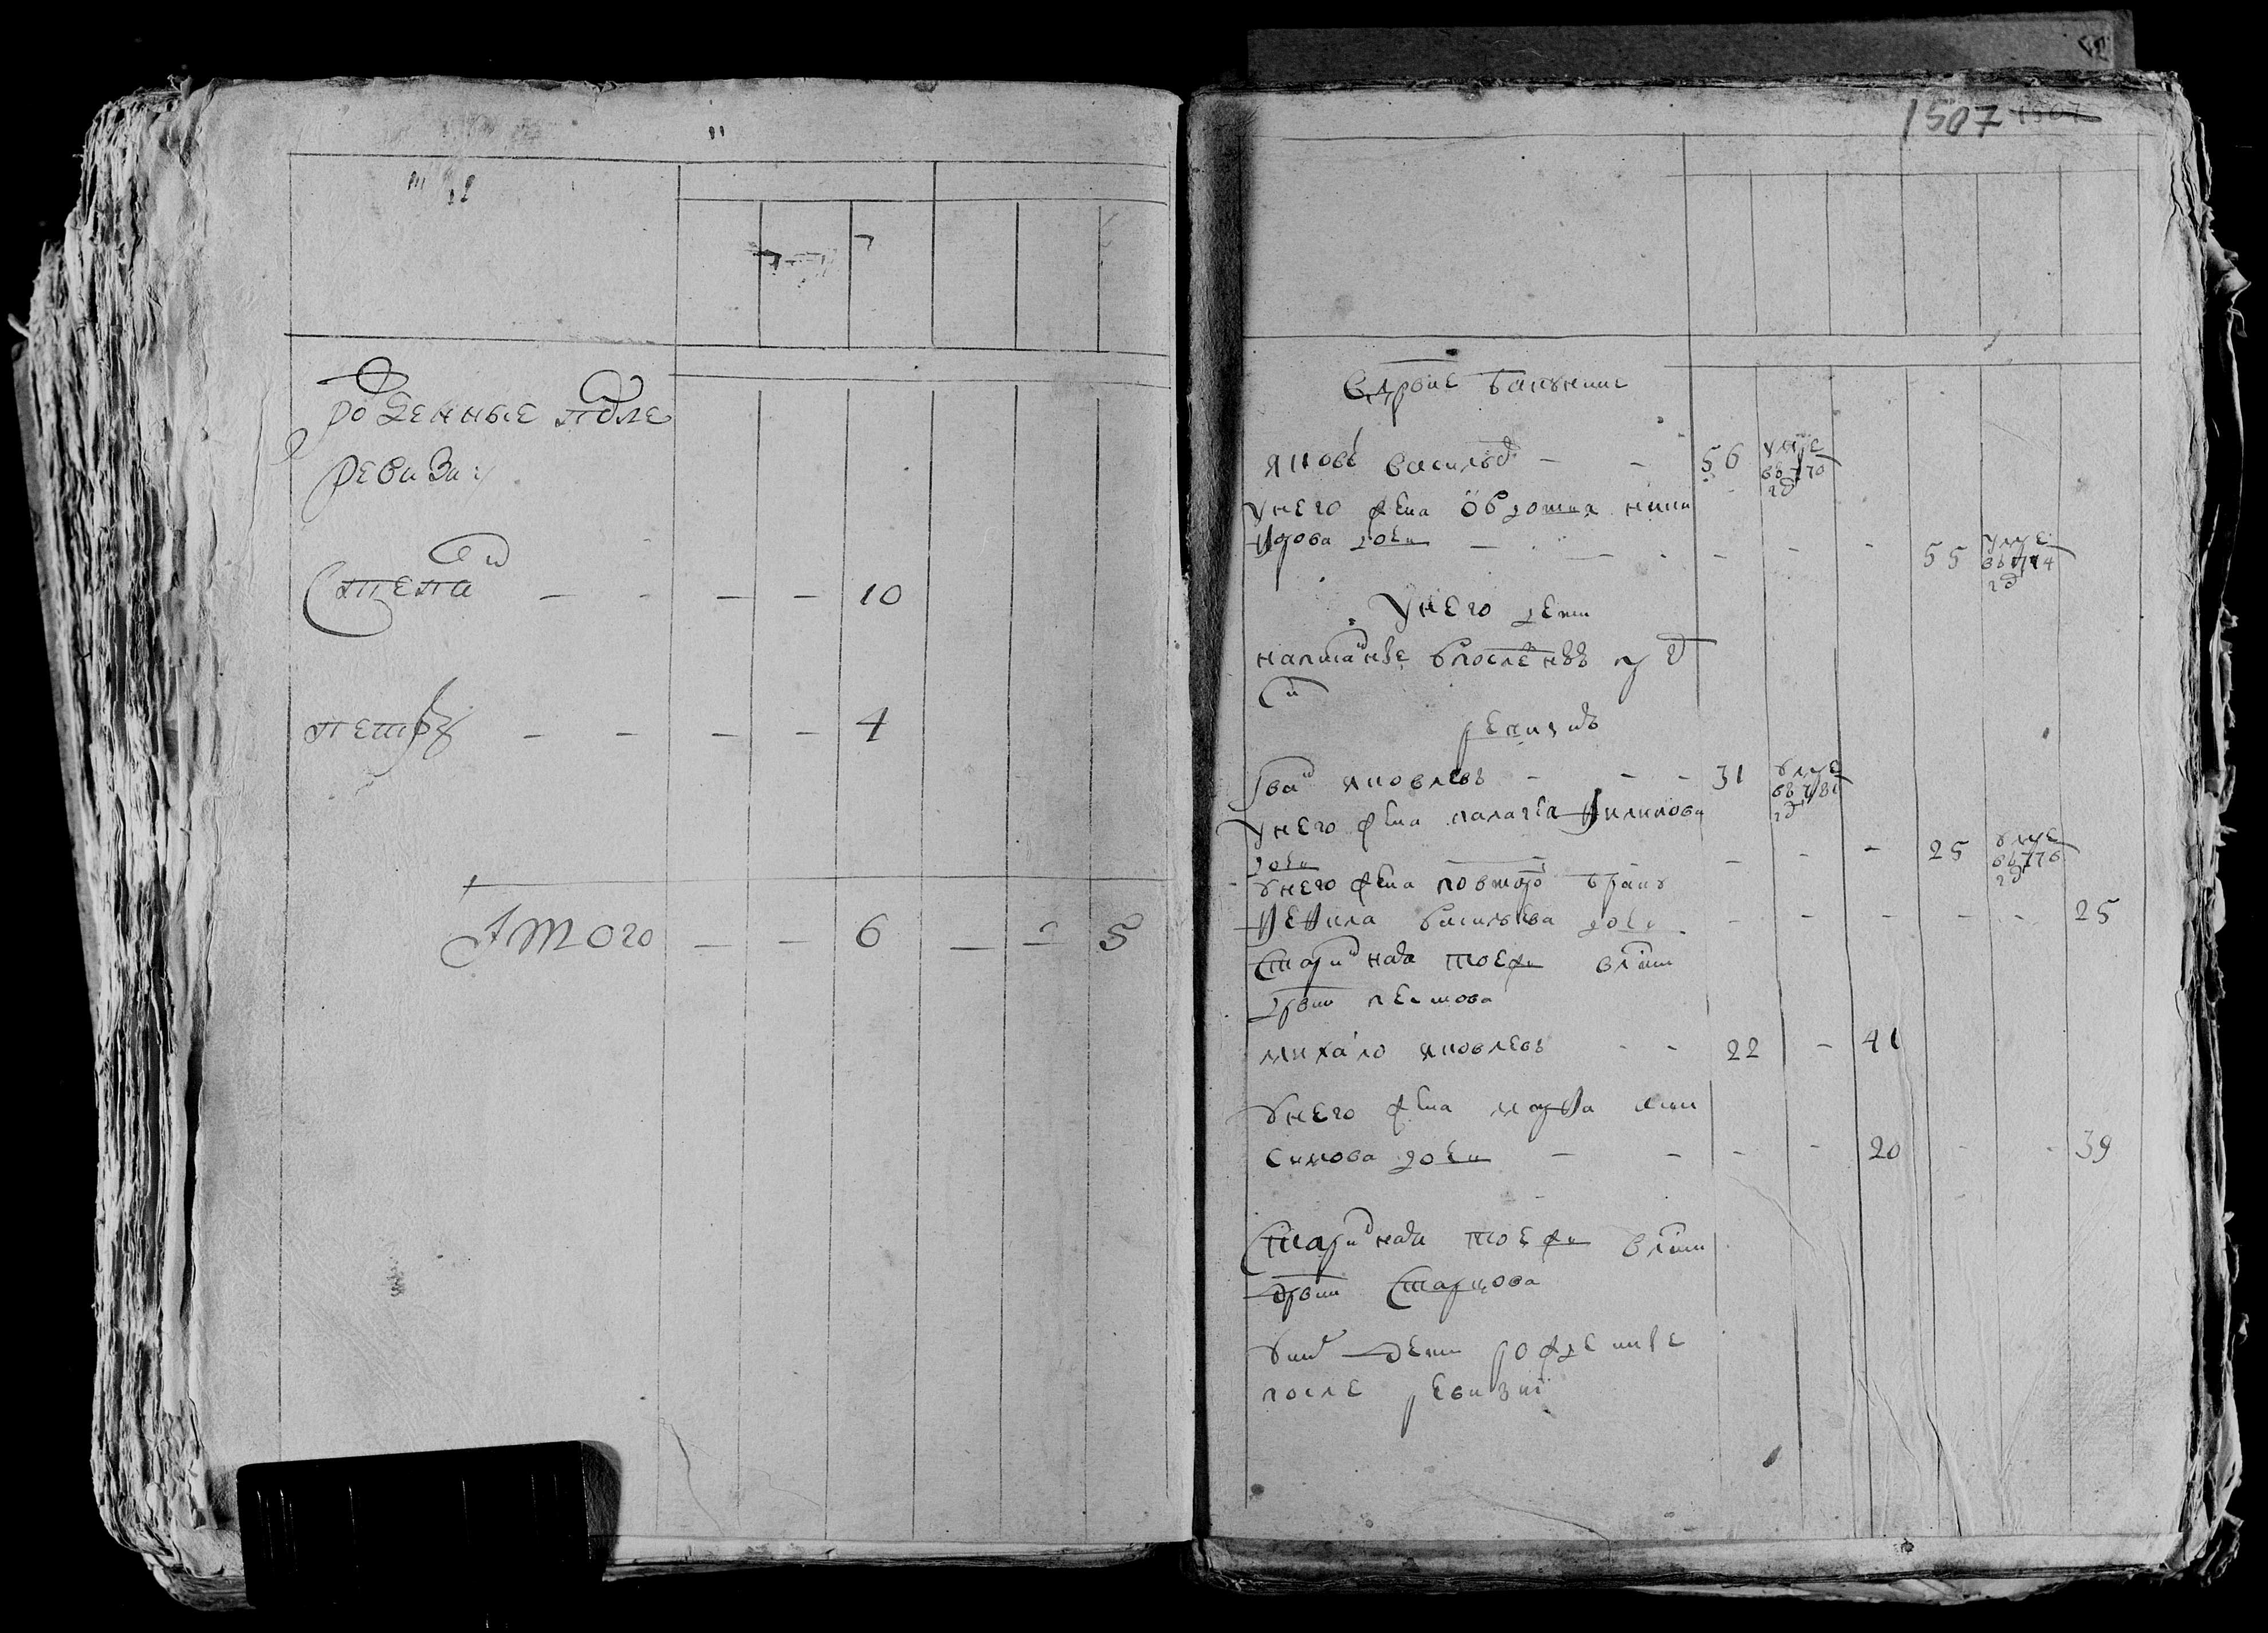 рожденные после
ревизи:
Степан - - - - 10
петръ - - - - 4
Итого - - 6 - - 5
1507
Вдрвне
яковъ василев - - 56 умре в 1770 год
унего жена Овдотия ники
форова дочь - - - - - - 55 умре в 1774 год
Унего дети
написанные впоследнею
ревизию
Иван яковлевъ - - - 31 умре в 1781 год
Унего жена палагея Филипова
дочь - - - - 25 умре в 1776 год
Унего жена повторо браку
Фекла Васильева дочь - - - - - 25
Старинная тоежъ вотчи
дрвни
михайло яковлевъ - - 22 - 41
Унего жена марфа мак
симова дочь - - - - 20 - - 39
Старинная тоежъ вотчи
дрвни Старцова
Уних дети рожденные
после ревизии